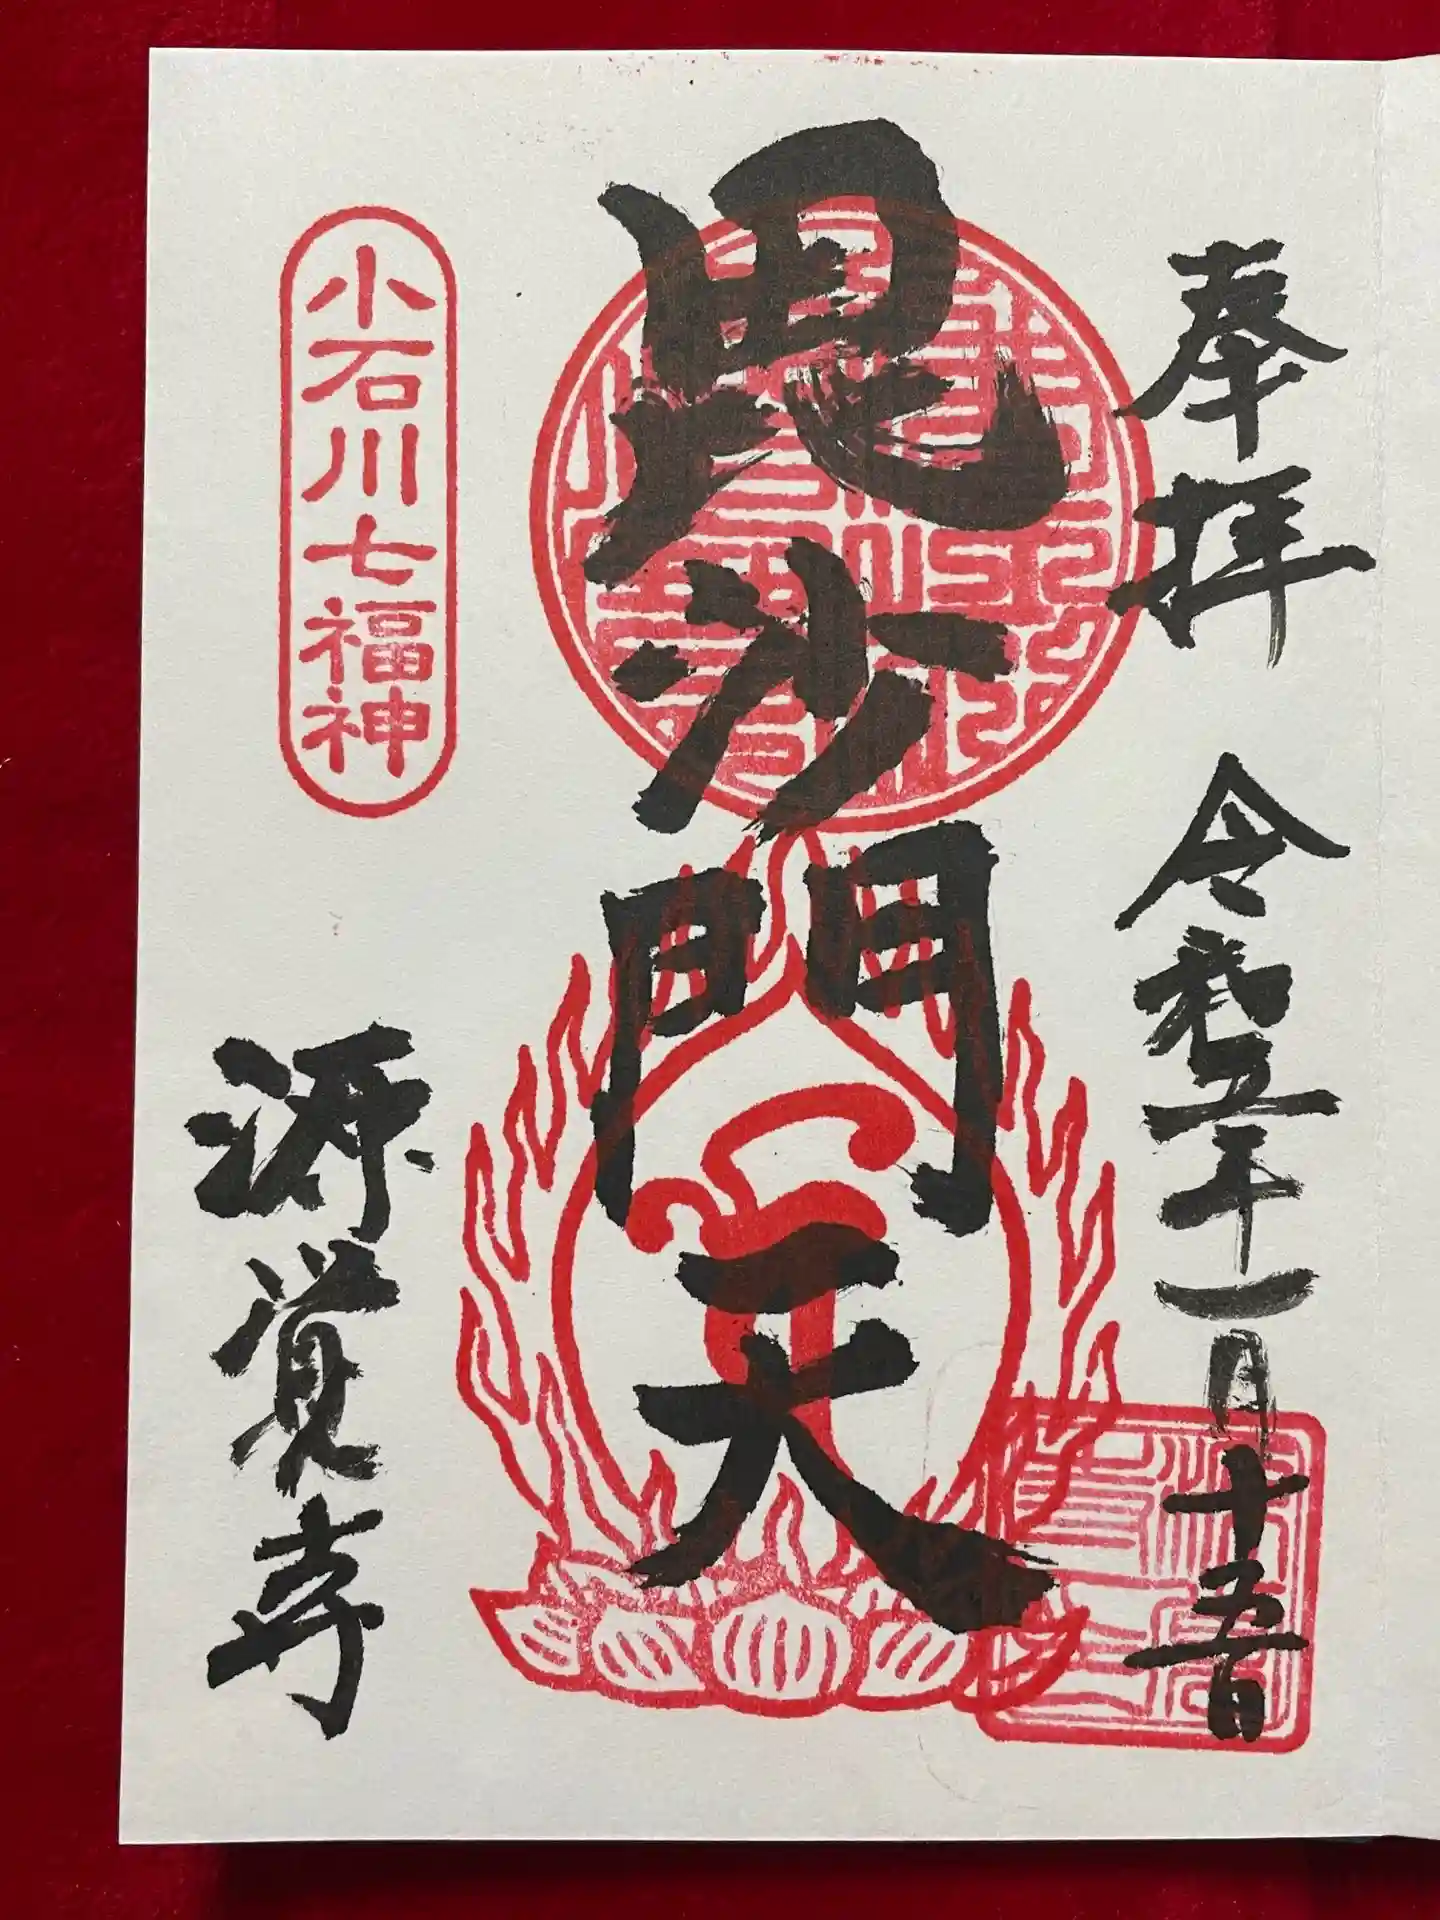 奉拝 令和五年一月十五日
毘沙門天
小石川七福神
源覚寺